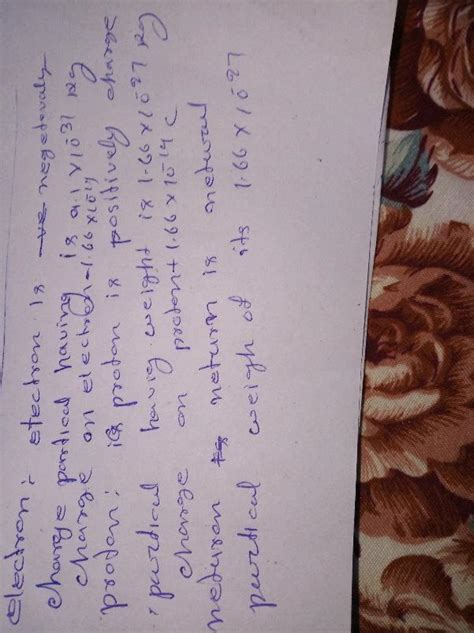 electron:- electron is -ve negetively
charge partical having is 9.1 x 10^-31 kg
charge on electron -1.66x10^-19
proton: its proton is positively charge
partical having weight is 1.66x10^-27 kg
charge on proton + 1.66x10^-19 C
neturon neturon is netural
partical weigh of its 1.66 x 10^-27